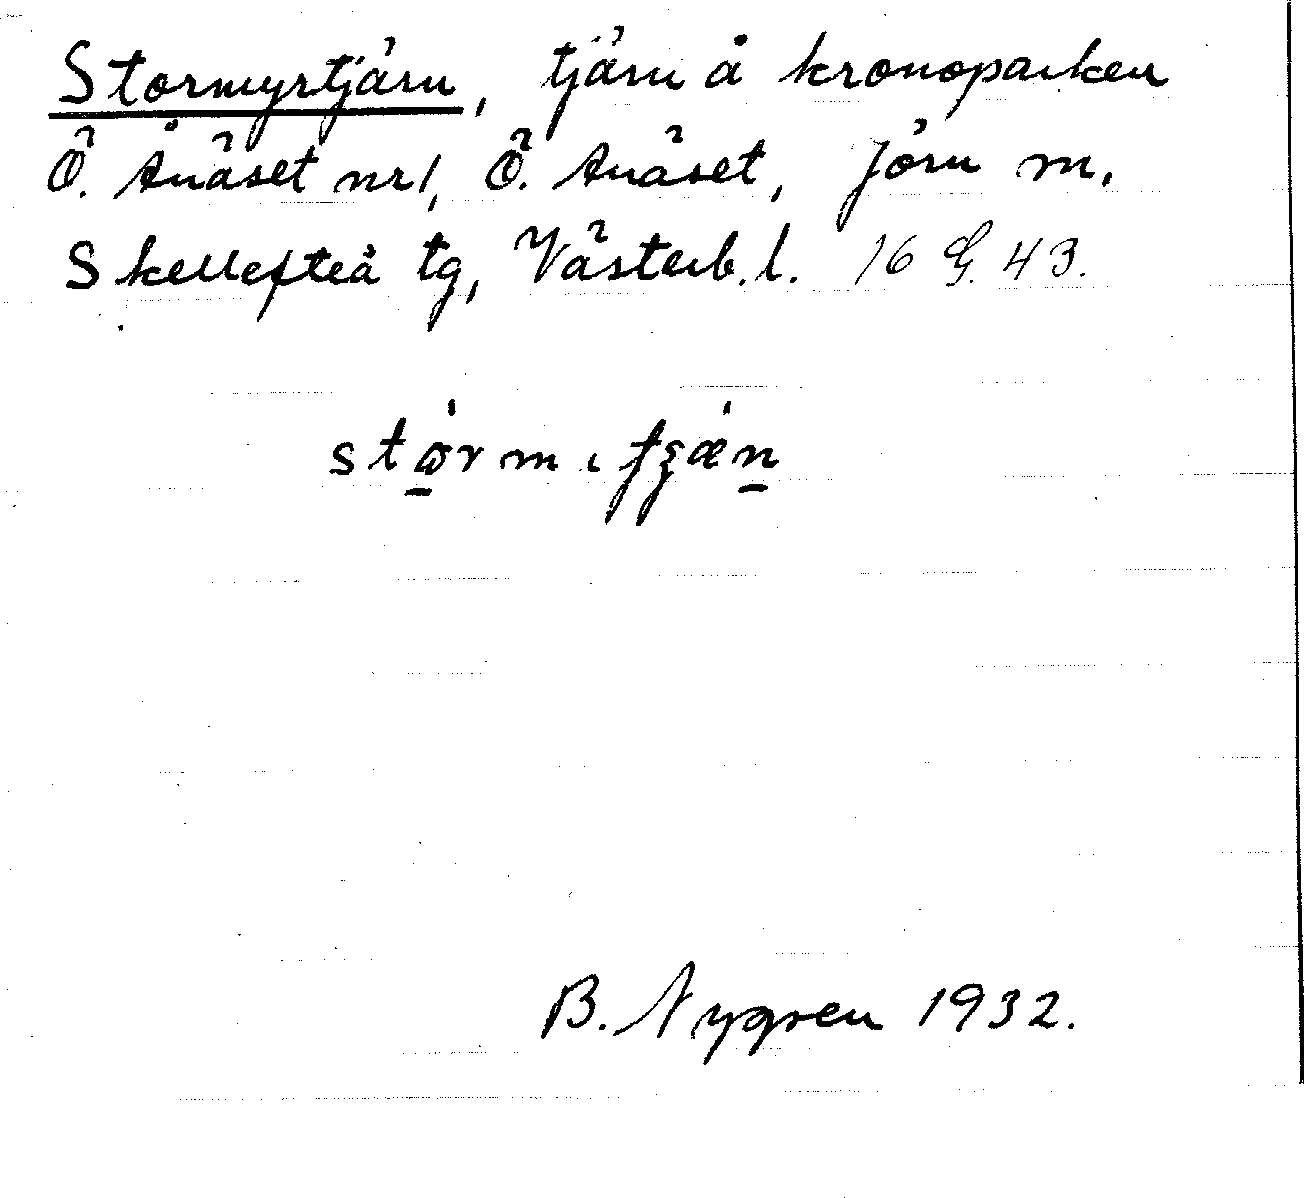 Stormyrtjärn, tjärn å kronoparken
Ö. Ånäset nr 1, Ö. Ånäset, Jörn m.
Skellefteå tg, Västerb. l. 16 G. 43.
B. Nygren 1932.